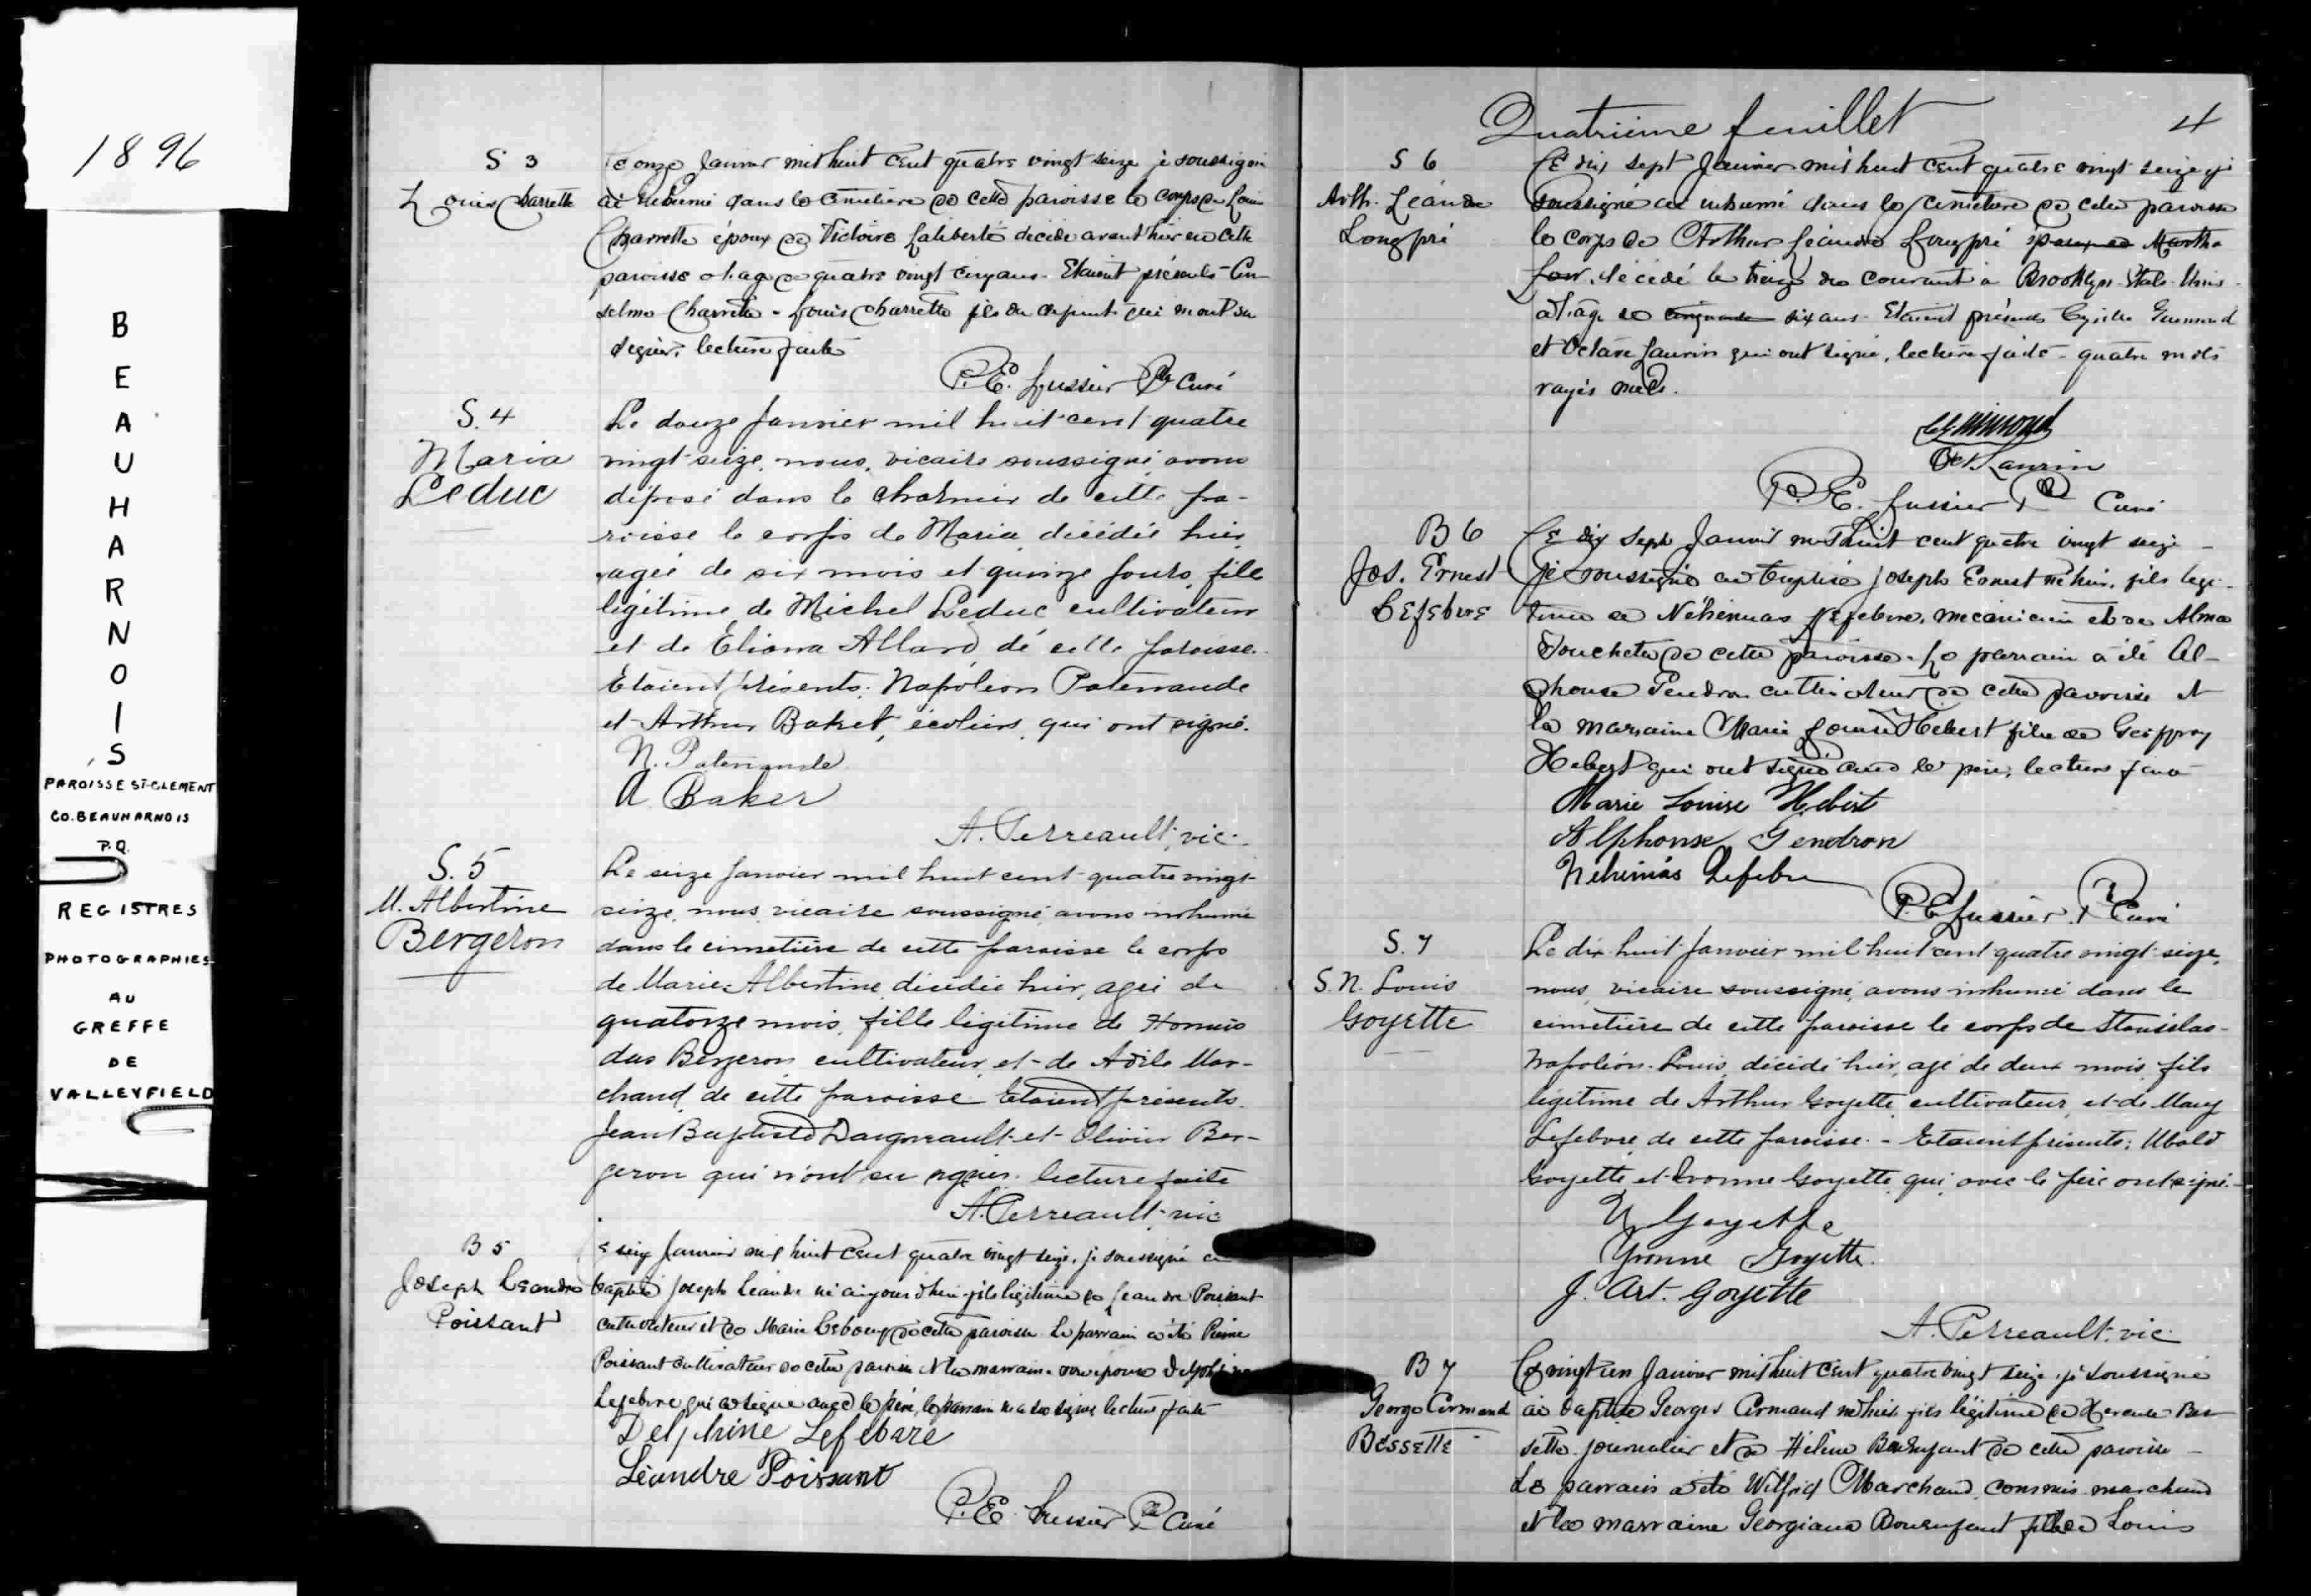 1896
BEAUHARNOIS
PAROISSE ST-CLEMENT
CO. BEAUHARNOIS
P.Q.
REGISTRES
PHOTOGRAPHIES
AU
GREFFE
DE
VALLEYFIELD
S 3
Louis Charrette
Le onze Janvier mil huit cent quatre vingt seize je soussigné
ai inhumé dans le cimetière de cette paroisse le corps de Louis
Charrette époux de Victoire Laliberté décédé avant hier en cette
paroisse à l'age de quatre vingt cinq ans. Etaient présents An
selme Charrette - Louis Charrette fils du défunt qui n'ont su
signer, lecture faite
P. E. Lussier Ptre Curé
S. 4
Maria
Leduc
Le douze Janvier mil huit cent quatre
vingt seize, nous, vicaire soussigné avons
déposé dans le charnier de cette pa-
roisse le corps de Maria, décédée hier,
agée de six mois et quinze jours, fille
légitime de Michel Leduc cultivateur
et de Eliona Allard, de cette paroisse.
Etaient présents: Napoléon Patenaude
et Arthur Baker, écoliers, qui ont signé.
N. Patenaude
A Baker
A. Perreault, vic.
S. 5
M. Albertine
Bergeron
Le seize Janvier mil huit cent quatre vingt
seize, nous, vicaire soussigné, avons inhumé
dans le cimetière de cette paroisse le corps
de Marie-Albertine, décédée hier, agée de
quatorze mois, fille légitime de Hormis
das Bergeron, cultivateur, et de Adile Mar-
chand, de cette paroisse. Etaient présents
Jean Baptiste Daigneault et Olivier Ber-
geron qui n'ont su signer. lecture faite
A. Perreault, vic
B 5
Joseph Leandre
Poissant
e seize Janvier mil huit cent quatre vingt seize, je soussigné ai
baptisé Joseph Leandre né aujourd'hui fils légitime de Leandre Poissant
cultivateur et de Marie Leboeuf de cette paroisse. Le parrain a été Pierre
Poissant cultivateur de cette paroisse et la marraine son épouse Delphine
Lefebvre qui a signé avec le père, le parrain n'a su signer lecture faite
Delphine Lefebvre
Léandre Poissant
P. E. Lussier Ptre Curé
Quatrième feuillet
4
S 6
Arth. Léandre
Longpré
Le dix sept Janvier mil huit cent quatre vingt seize je
soussigné ai inhumé dans le cimetière de cette paroisse
le corps de Arthur Léandre Longpré époux de Martha
Low. décédé le treize du courant à Brooklyn Etats Unis
à l'age de cinquante six ans. Etaient présents Cyrille Guimond
et Octave Laurin qui ont signé, lecture faite - quatre mots
rayés nuls.
C Guimond
Oct Laurin
P. E. Lussier Ptre Curé
B 6
Jos. Ernest
Lefebvre
Le dix sept Janvier mil huit cent quatre vingt seize
je soussigné ai baptisé Joseph Ernest né hier, fils légi-
time de Néhémias Lefebvre, mécanicien et de Alma
Touchette de cette paroisse. Le parrain a été Al-
phonse Gendron cultivateur de cette paroisse et
la marraine Marie Louise Hebert fille de Geoffroy
Hebert qui ont signé avec le père; lecture faite
Marie Louise Hébert
Alphonse Gendron
Néhémias Lefebvre
P. E Lussier Ptre Curé
S. 7
S. N. Louis
Goyette
Le dix-huit Janvier mil huit cent quatre vingt-seize,
nous, vicaire soussigné, avons inhumé dans le
cimetière de cette paroisse le corps de Stanislas-
Napoléon-Louis, décédé hier, agé de deux mois, fils
légitime de Arthur Goyette, cultivateur, et de Mary
Lefebvre, de cette paroisse. - Etaient présents: Ubald
Goyette et Yvonne Goyette, qui, avec le père ont signé.
U Goyette
Yvonne Goyette
J. Art. Goyette
A. Perreault, vic.
B 7
George Armand
Bessette
Le vingt un Janvier mil huit cent quatre vingt seize je soussigné
ai baptisé Georges Armand né hier fils légitime de Hercule Bes
sette journalier et de Hélène Bonenfant de cette paroisse
Le parrain a été Wilfrid Marchand, commis marchand
et la marraine Georgiana Bonenfant fille de Louis